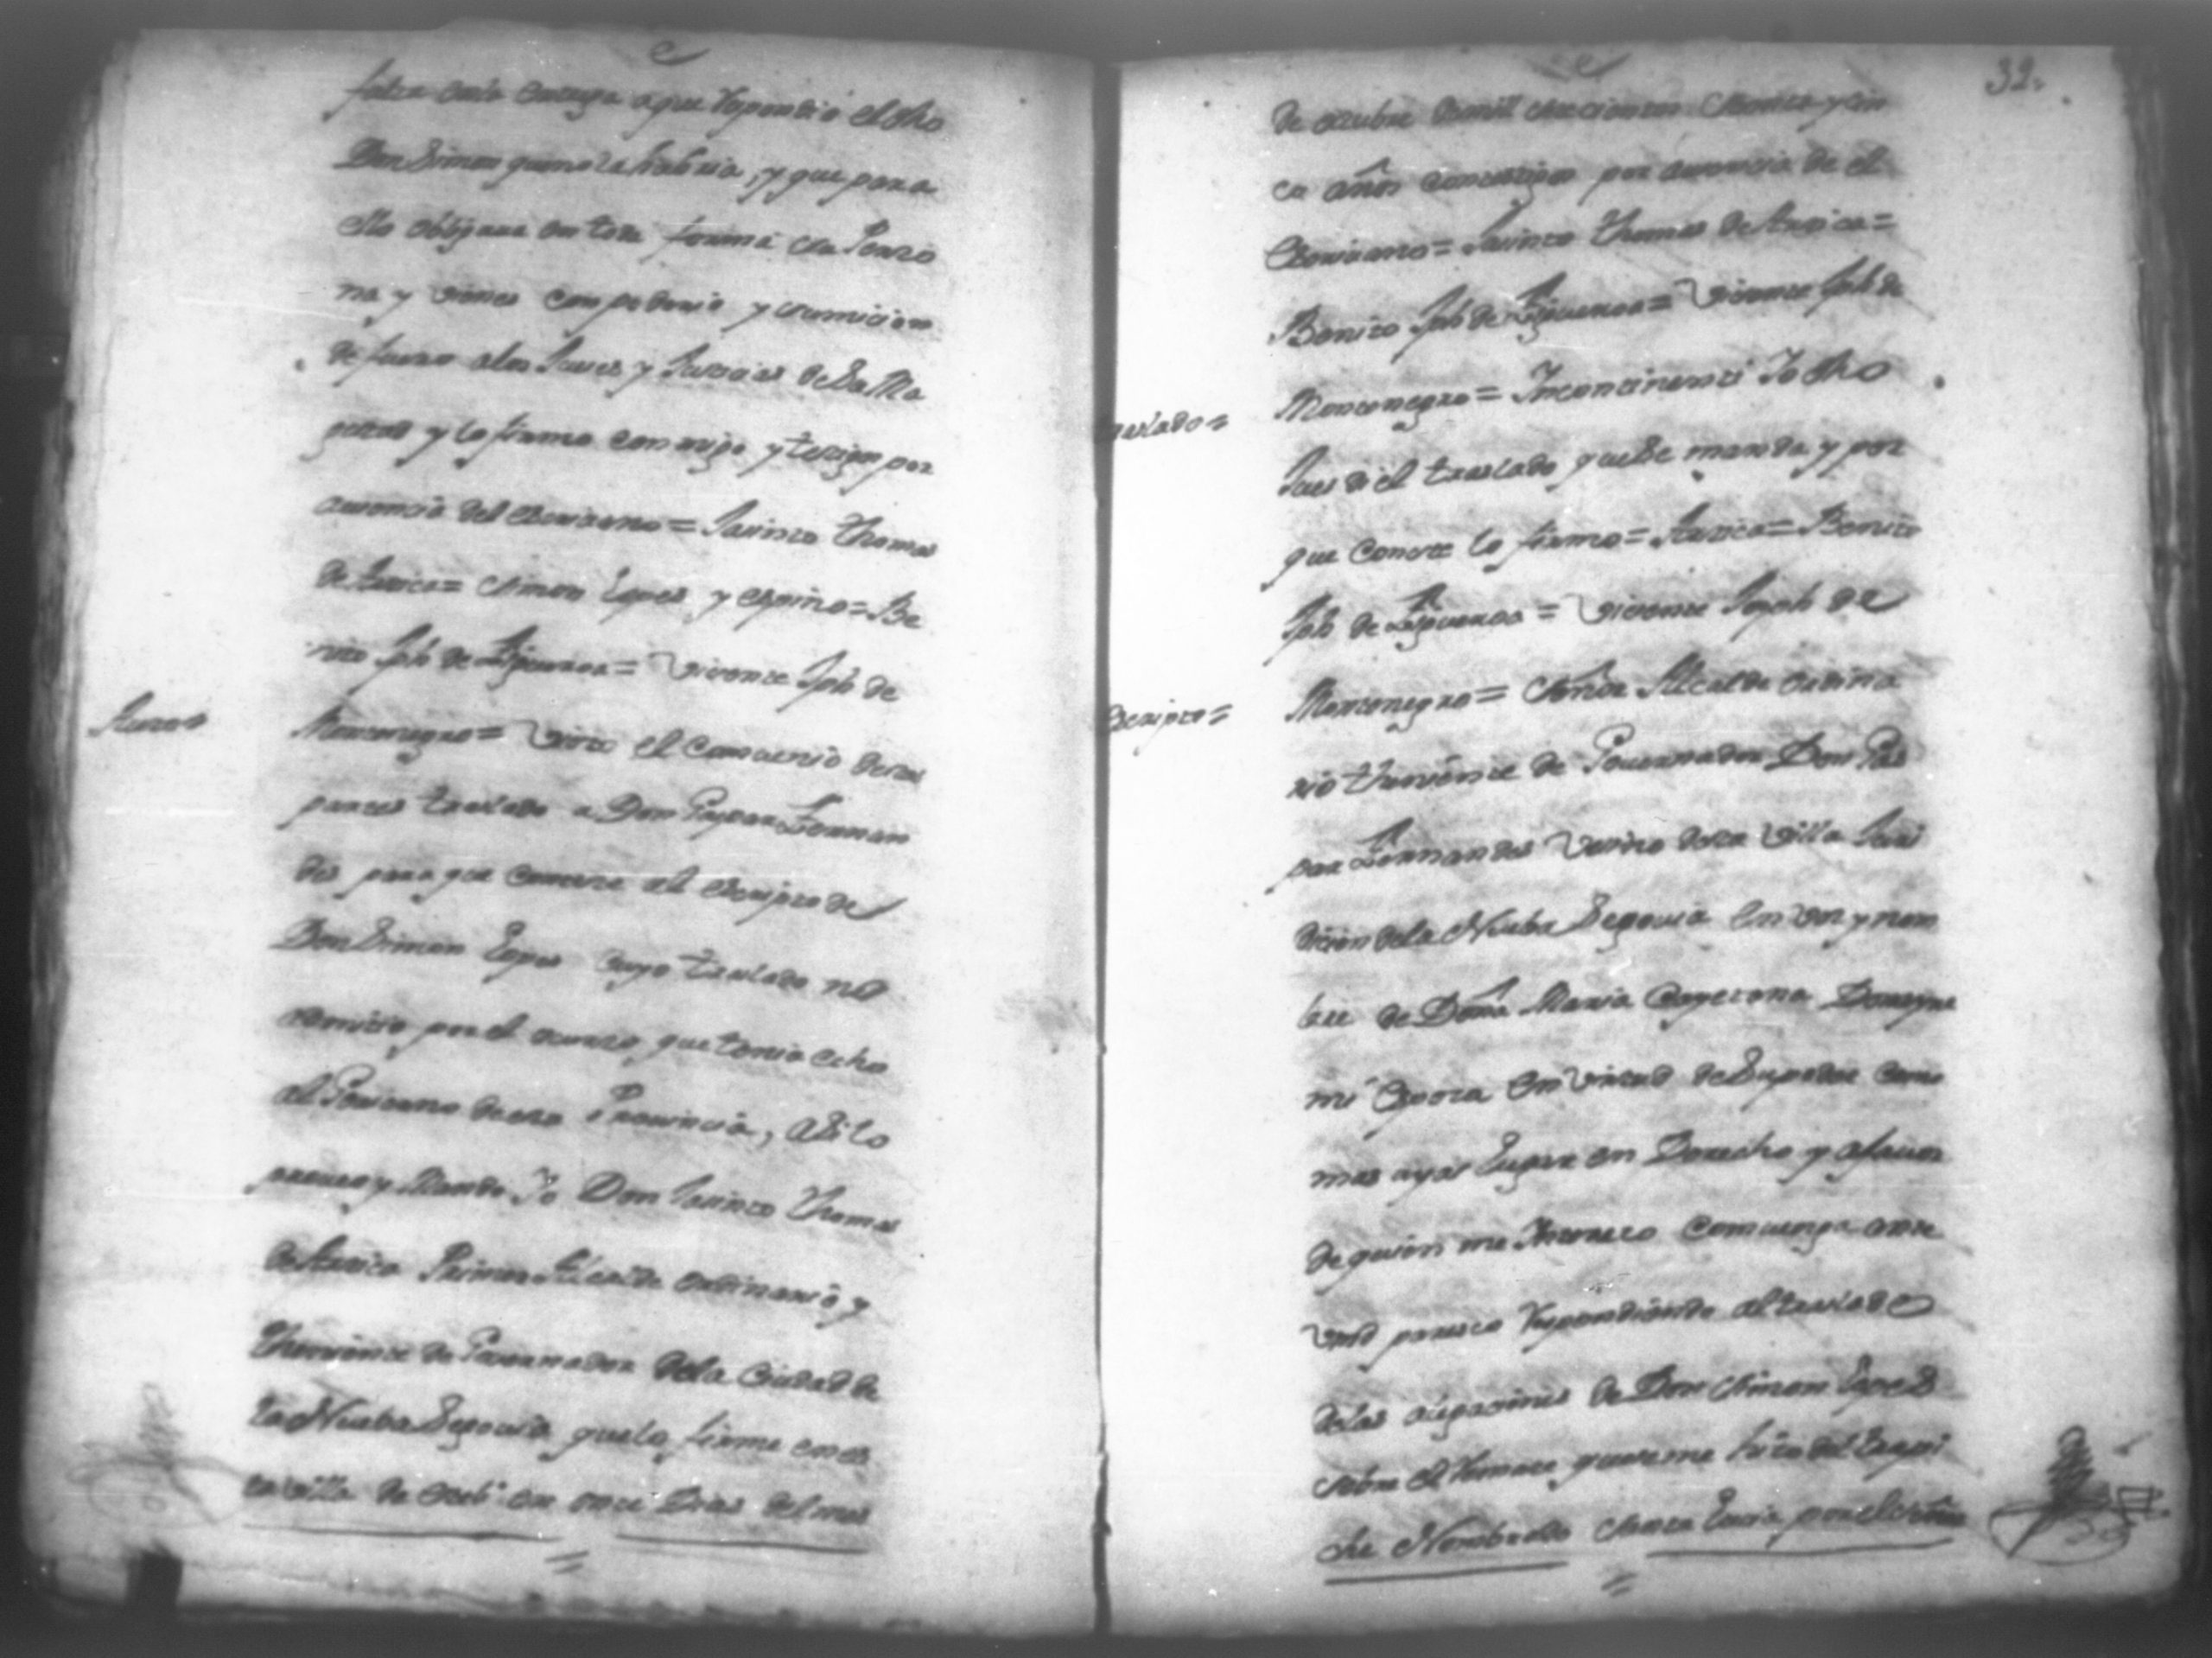 falta en la entrega a que respondio el dho
Don Simon que no la habria, y que para
ello obligaua en toda forma su Perzo
na y vienes con poderio y sumicion
de fuero a los Jueses y Justicias de Su Ma
gestad y lo firmo conmigo y testigos por
ausencia del escriuano = Jasinto Thomas
de = Simon Lopes y espino = Be
nito Jph de Figueroa = Visente Jph de
Auto =
Montenegro = Visto el Comuenio destas
partes traslado a Don Gaspar Fernan
des para que conteste al escripto de
Don Simon Lopes cuyo traslado no
admitio por el recurzo que tenia echo
al Gouierno desta Prouincia, asi lo
proueo y Mando Yo Don Jasinto Thomas
de Primer Alcalde ordinario y
Theniente de Gouernador dela Ciudad de
la Nueba Segouia que lo firme en es
ta villa de en onse Dias del mes
32.
de octubre de mil setecientos y sin
co años contestigos por ausencia de el
Escriuano = Jasinto Thomas de =
Benito Jph de Figueroa = Visente Jph de
traslado =
Montenegro = Incontinenti Yo dho
Jues di el traslado que se manda y por
que Conste lo firmo = = Benito
Jph de Figueroa = Visente Joseph de
Escripto =
Montenegro = Señor Alcalde ordina
rio theniente de Gouernador Don Gas
par Fernandes Vesino desta Villa Juris
dicion dela Nueba Segouia en vos y nom
bre de Doña Maria Cayetana
mi Espoza en virtud de Su poder como
mas aya Lugar en Derecho y a fauor
de quien me Intereso Comuenga ante
Vmd paresco respondiendo al traslado
delas de Don Simon Lopes
sobre el remate que se me hizo del trapi
che Nombrado Santa Lucia por el